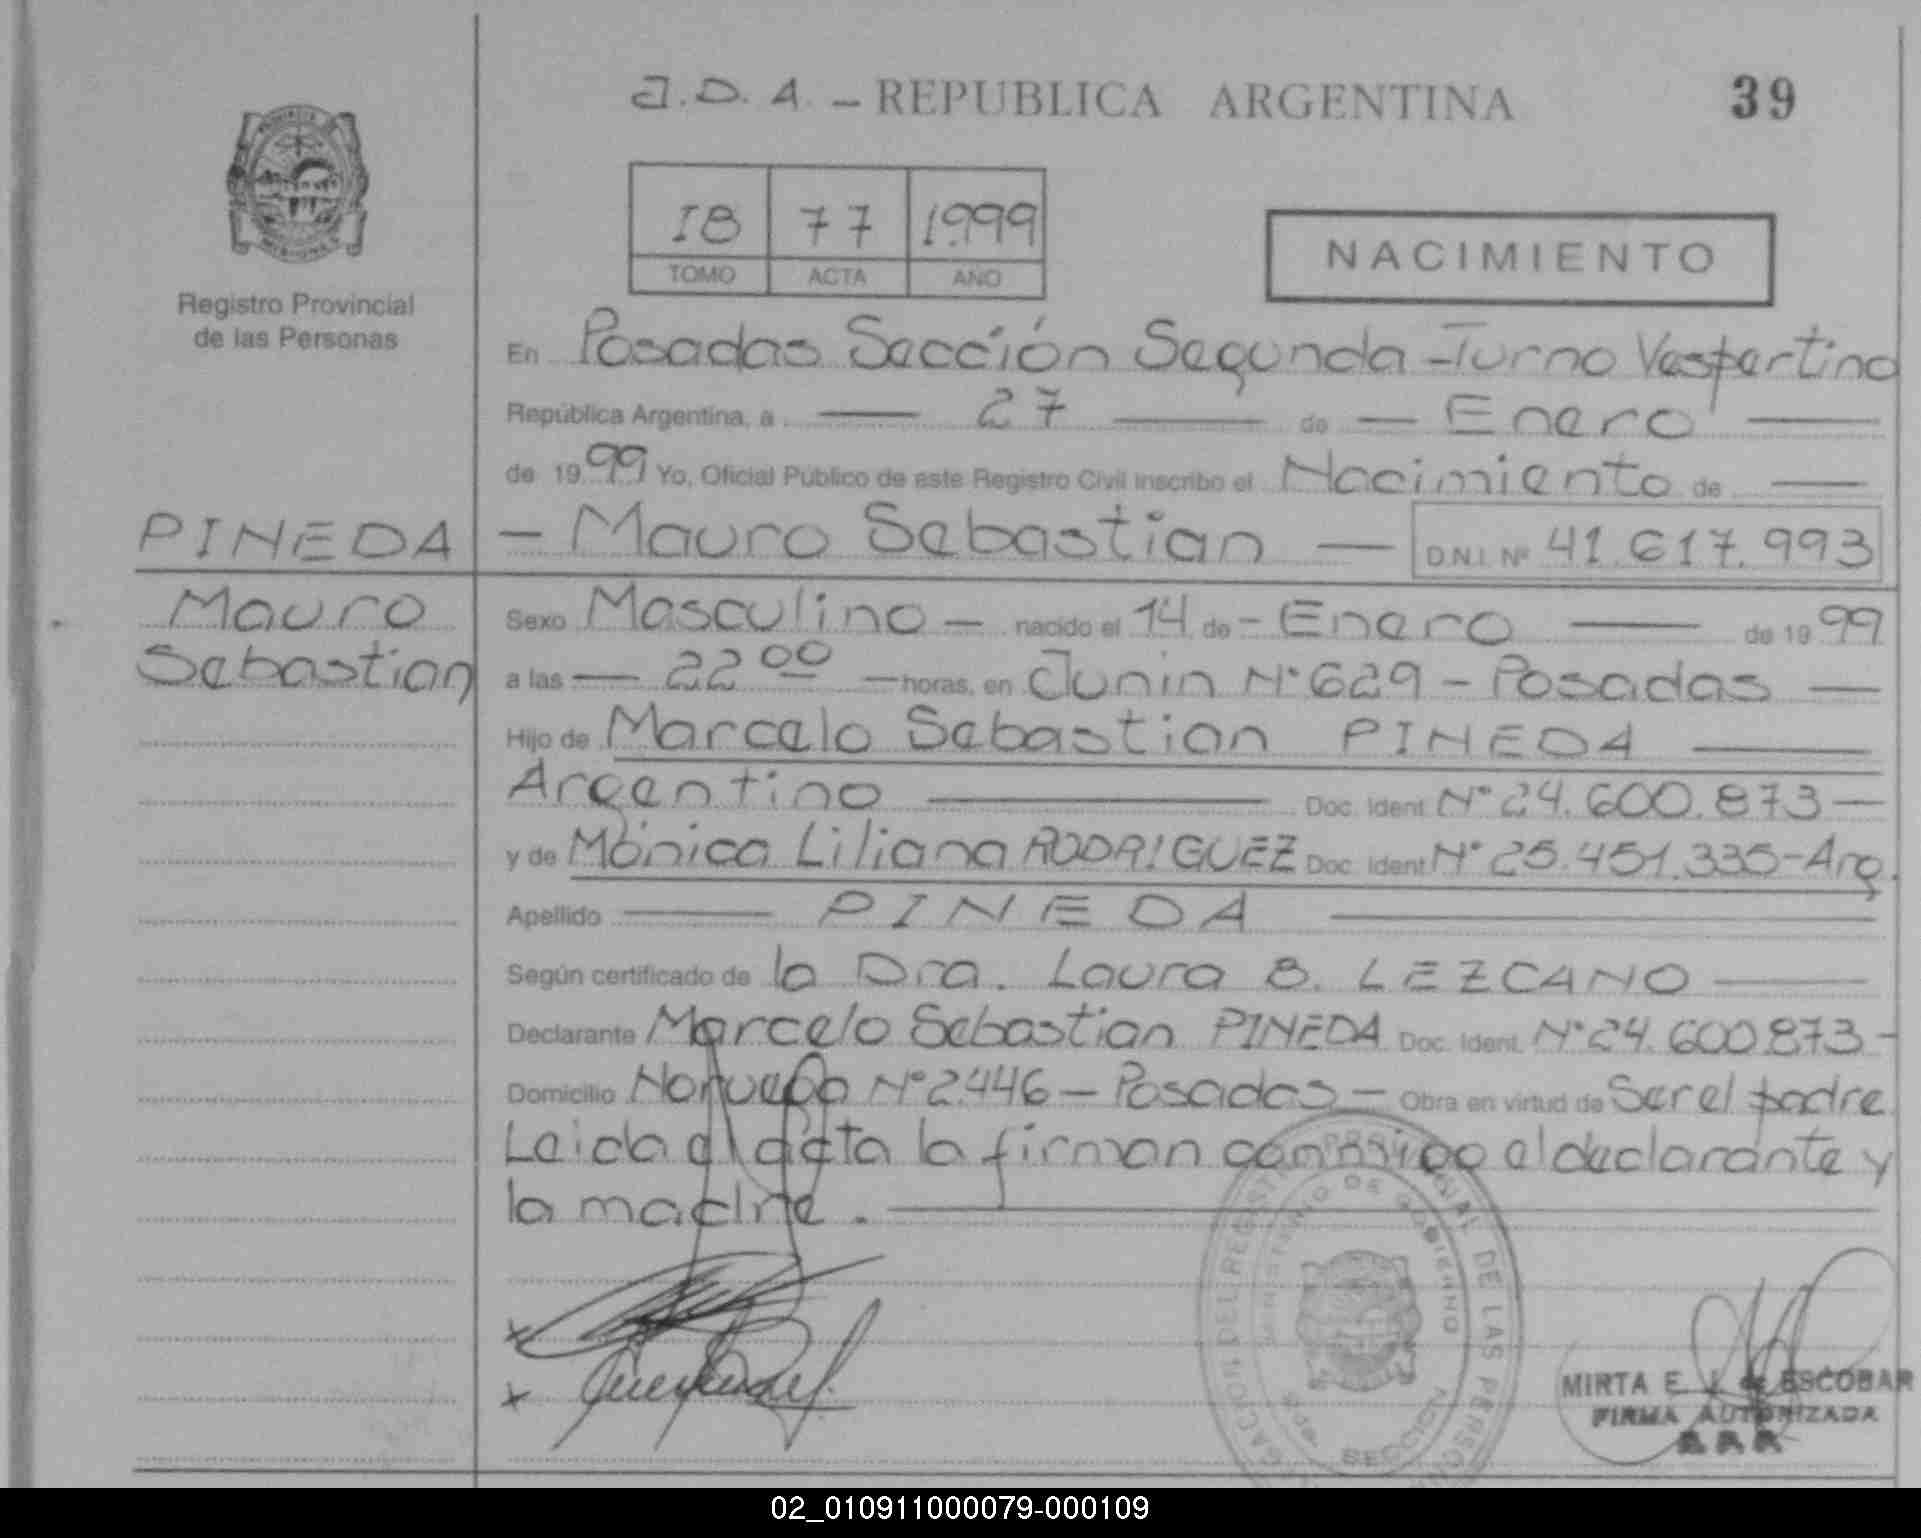 J.D.A. - REPUBLICA ARGENTINA
39
18 77 1999
TOMO ACTA AÑO
NACIMIENTO
Registro Provincial
de las Personas
En Posadas Sección Segunda - Turno Vespertino
República Argentina, a — 27 — de — Enero —
de 1999 Yo, Oficial Público de este Registro Civil inscribo el Nacimiento de —
PINEDA
- Mauro Sebastian — D.N.I. Nº 41.617.993
Mauro
Sebastian
Sexo Masculino - nacido el 14 de - Enero — de 1999
a las — 22 00 — horas, en Junin N° 629 - Posadas —
Hijo de Marcelo Sebastian PINEDA —
Argentino — Doc. Ident. N° 24.600.873 —
y de Mónica Liliana RODRIGUEZ Doc. Ident. N° 25.451.335 - Arg.
Apellido — PINEDA —
Según certificado de la Dra. Laura B. LEZCANO —
Declarante Marcelo Sebastian PINEDA Doc. Ident. N° 24.600.873 -
Domicilio Noruega N° 2446 - Posadas - Obra en virtud de Ser el padre
Leida el acta la firman conmigo el declarante y
la madre. —
DEL REGISTRO PROVINCIAL DE LAS PERSONAS
MINISTERIO DE GOBIERNO
SECCION
MIRTA E. J. de ESCOBAR
FIRMA AUTORIZADA
02_010911000079-000109